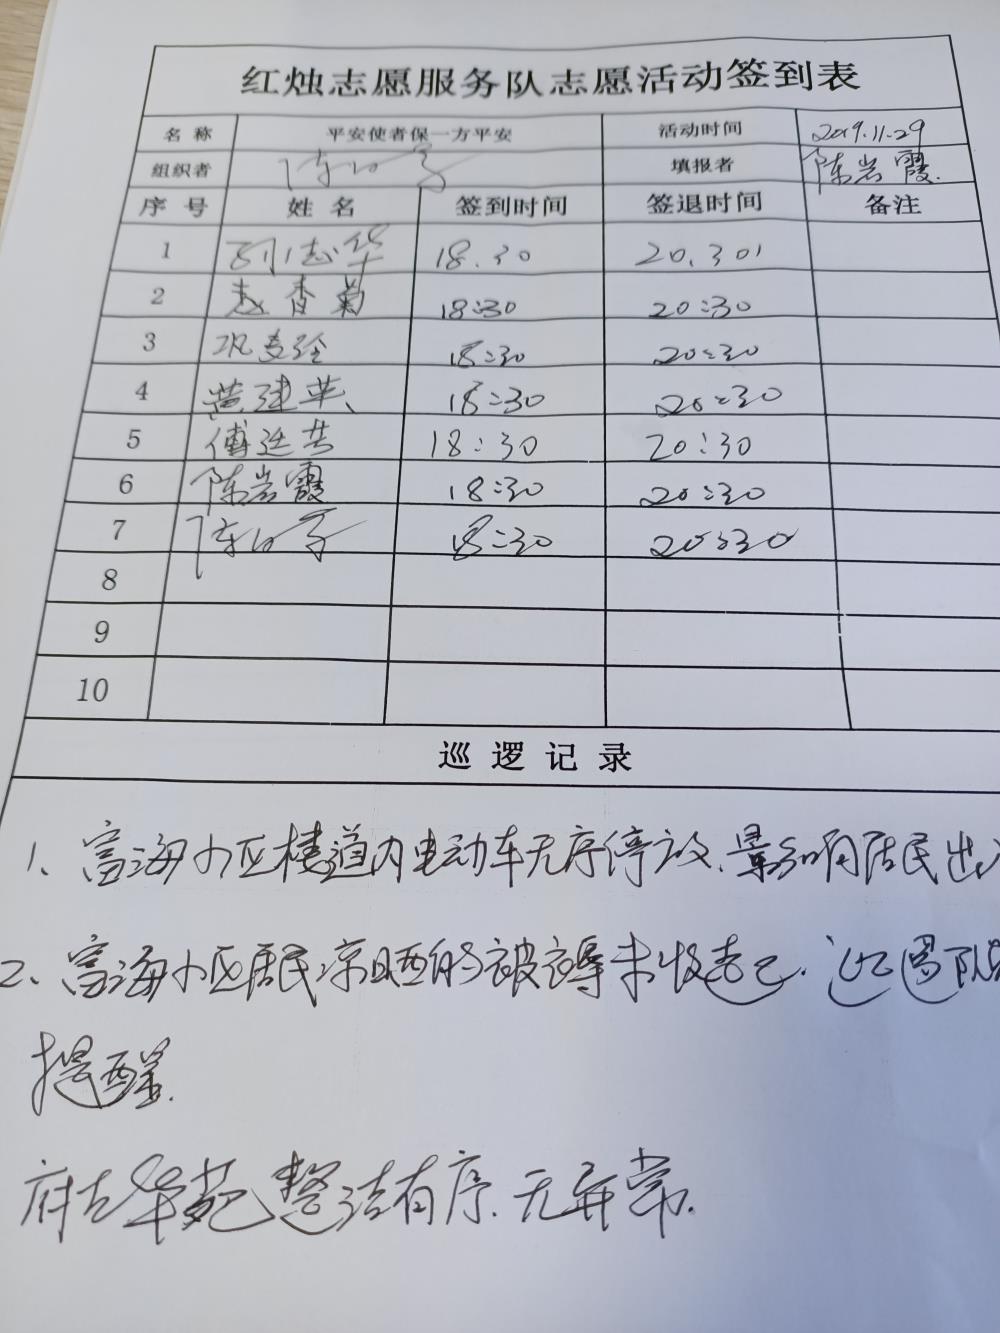 红烛志愿服务队志愿活动签到表
名称 平安使者保一方平安 活动时间 2019.11.29
组织者 填报者 陈岩霞
序号 姓名 签到时间 签退时间 备注
1 刘志华 18.30 20.30
2 赵香菊 18:30 20:30
3 巩 18:30 20:30
4 黄建英 18:30 20:30
5 傅廷 18:30 20:30
6 陈岩霞 18:30 20:30
7 18:30 20:30
8
9
10
巡逻记录
1、富海小区楼道内电动车无序停放.影响居民出
2、富海小区居民凉晒的被褥未收起.巡逻队
提醒.
府左华苑整洁有序.无异常.